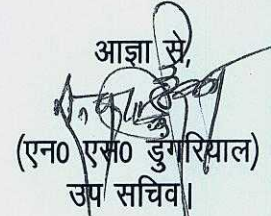 आज्ञा से,
(एन0 एस0 डुंगरियाल)
उप सचिव।